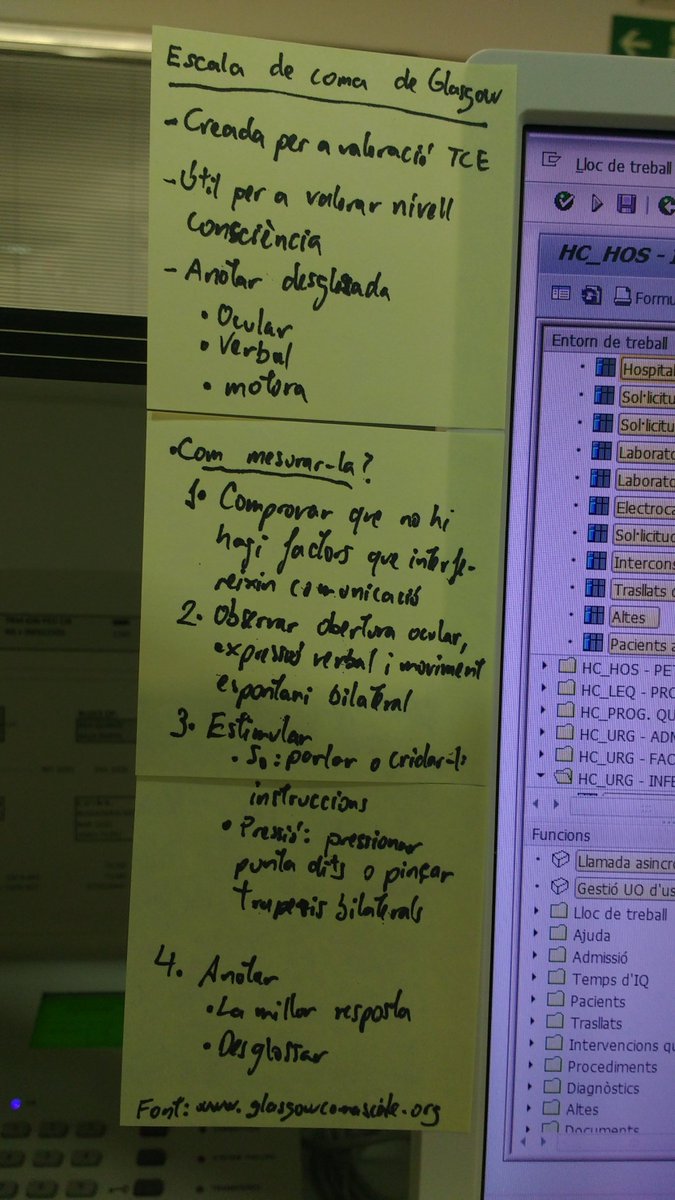 Escala de coma de Glasgow
- Creada per a valoració TCE
- Útil per a valorar nivell
consciència
- Anotar desglosada
• Ocular
• Verbal
• motora
• Com mesurar-la?
1. Comprovar que no hi
hagi factors que interfe-
reixin comunicació
2. Observar obertura ocular,
expressió verbal i moviment
espontani bilateral
3. Estimular
• So: parlar o cridar-li
instruccions
• Pressió: pressionar
punta dits o pinçar
trapezis bilaterals
4. Anotar
• La millor resposta
• Desglossar
Font: www.glasgowcomascale.org
Lloc de treball
HC_HOS - I
Formu
Entorn de treball
Hospital
Sol·licitu
Sol·licitu
Laborato
Laborato
Electroca
Sol·licituc
Intercons
Trasllats c
Altes
Pacients a
HC_HOS - PET
HC_LEQ - PRO
HC_PROG. QU
HC_URG - ADM
HC_URG - FAC
HC_URG - INFE
Funcions
Llamada asincro
Gestió UO d'us
Lloc de treball
Ajuda
Admissió
Temps d'IQ
Pacients
Trasllats
Intervencions qu
Procediments
Diagnòstics
Altes
Documents